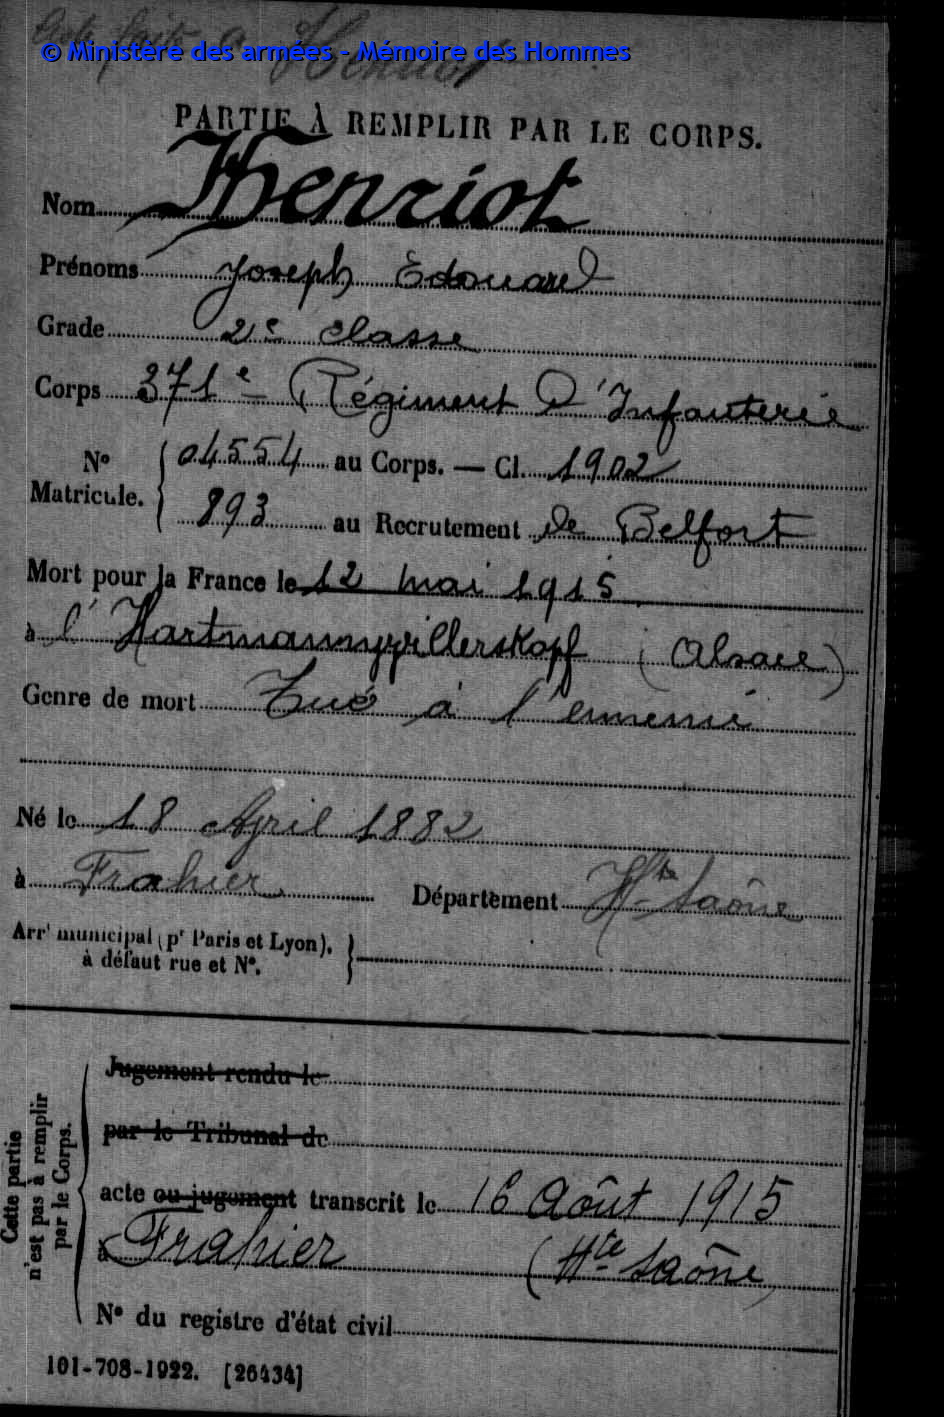 Henriot
© Ministère des armées - Mémoire des Hommes
PARTIE À REMPLIR PAR LE CORPS.
Nom Henriot
Prénoms Joseph Edouard
Grade 2e classe
Corps 371e Régiment d'Infanterie
No Matricule. { 04554 au Corps. — Cl. 1902
893 au Recrutement de Belfort
Mort pour la France le 12 mai 1915
à l'Hartmannswillerskopf (Alsace)
Genre de mort Tué à l'ennemi
Né le 18 April 1882
à Frahier Département Hte Saône
Arrt municipal (pr Paris et Lyon),
à défaut rue et No.
Cette partie
n'est pas à remplir
par le Corps.
Jugement rendu le
par le Tribunal de
acte ou jugement transcrit le 16 Août 1915
à Frahier (Hte Saône)
No du registre d'état civil
101-708-1922. [26434]